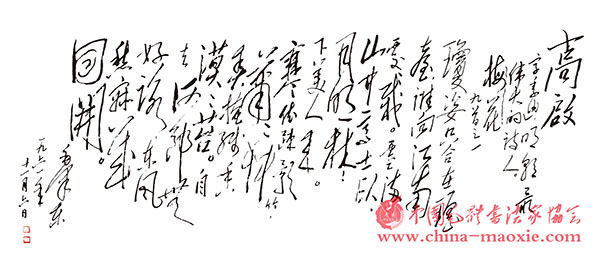 高啟
字季迪,明朝最
伟大的诗人。
梅花
九首之一
瓊姿只合在瑶
臺,誰向江南
处处栽。雪满
山中高士卧,
月明林
下美人来。
寒依疏影
萧萧竹,
春掩残香
漠漠苔。自
去何郎無
好詠,东风
愁寂几
回開。
毛泽东
一九六一年
十一月六日
中国毛体书法家协会
www.china-maoxie.com